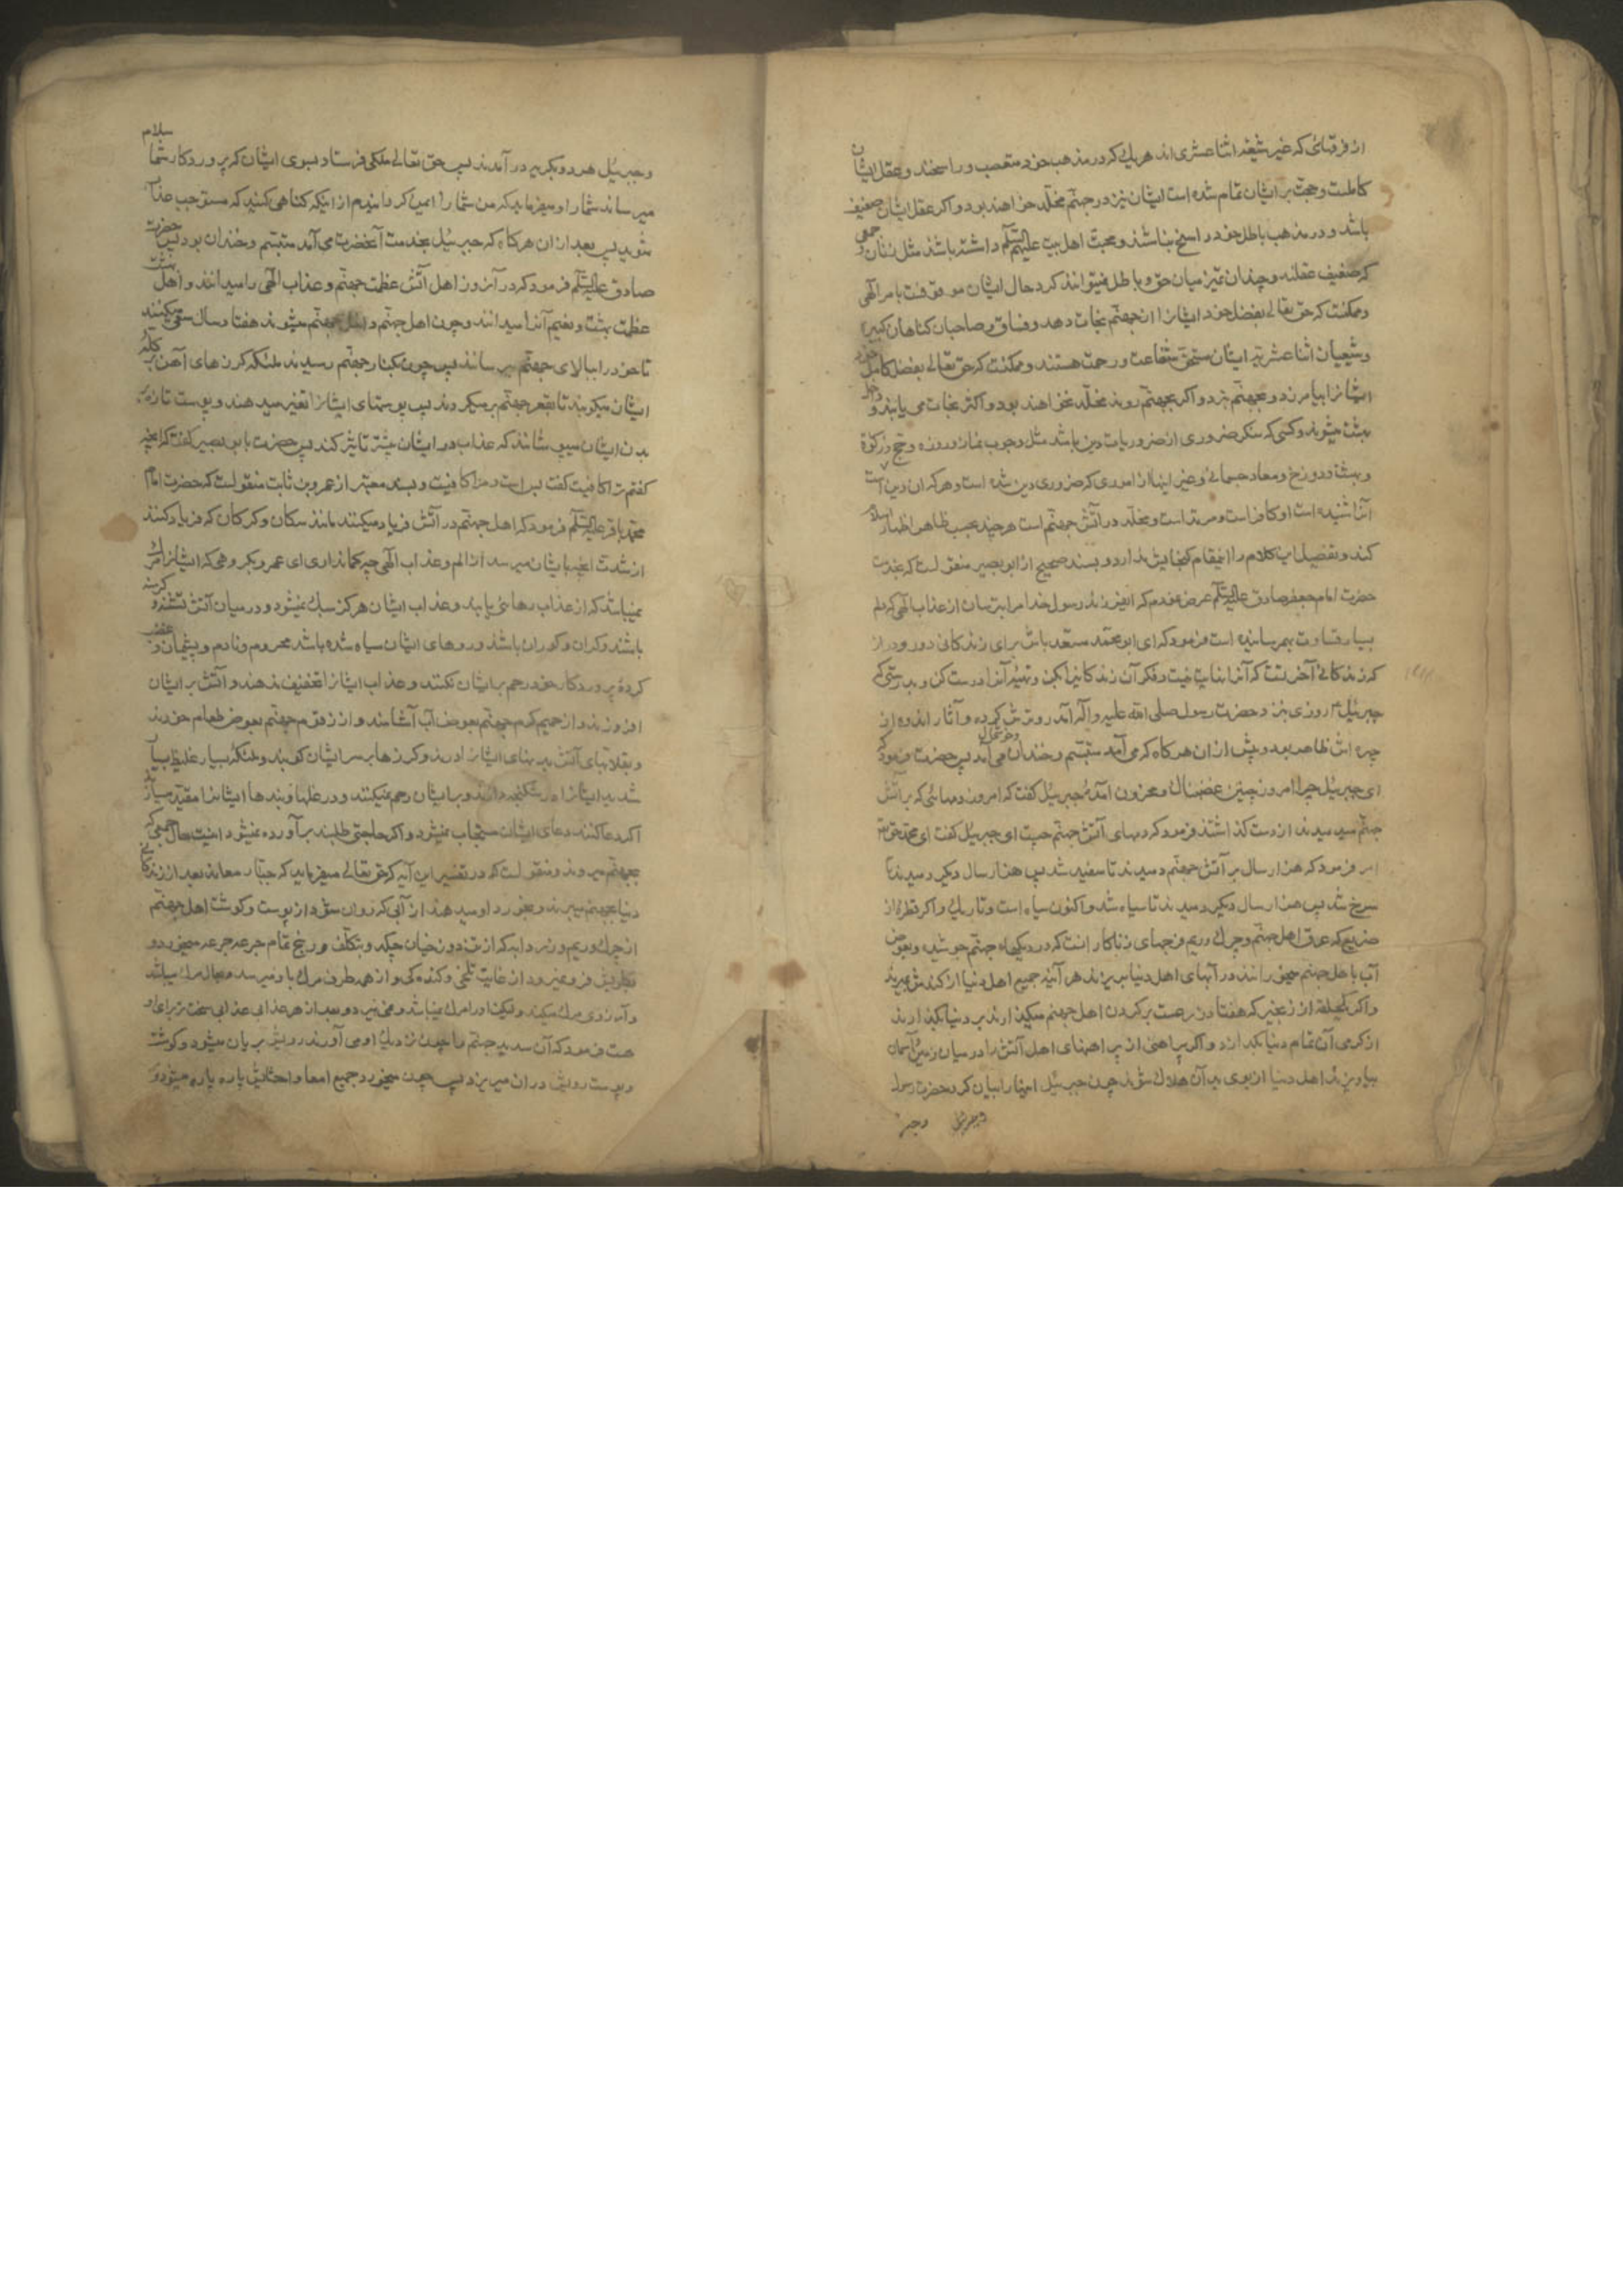 از فرقهائی که غیر شیعه اثنا عشری اند هر یك که در مذهب خود متعصب و راسخند و عقل ایشان
کاملست و حجت بر ایشان تمام شده است ایشان نیز در جهنم مخلد خواهند بود و اکر عقل ایشان ضعیف
باشد و در مذهب باطل خود راسخ نباشند و محبت اهل بیت علیهم السلام داشته باشند مثل زنان و جمعی
که ضعیف عقلند و چندان تمیز میان حق و باطل نمیتوانند کرد حال ایشان موقوفست بامر آلهی
و ممکنست که حق تعالی بفضل خود ایشانرا از جهنم نجات دهد و فساق و صاحبان کناهان کبیره
و شیعیان اثنا عشریه ایشان مستحق شفاعت و رحمت هستند و ممکنست که حق تعالی بفضل کامل خود
ایشانرا بیامرزد و بجهنم نبرد و اکر بجهنم روند مخلد نخواهند بود و آکثر نجات می یابند و داخل
بهشت میشوند و کسی که منکر ضروری از ضروریات دین باشد مثل وجوب نماز و روزه و حج و زکوة
و بهشت و دوزخ و معاد جسمانی و غیر اینها از اموری که ضروری دین شده است و هر که در ان دین است
آنرا شنیده است او کافر است و مرتد است و مخلد در آتش جهنم است هر چند بحسب ظاهر اظهار اسلام
کند و تفصیل این کلام را اینمقام کنجایش ندارد و بسند صحیح از ابو بصیر منقولست که بخدمت
حضرت امام جعفر صادق علیه السلام عرض نمودم که ایفرزند رسول خدا مرا بترسان از عذاب آلهی که دلم
بسیار قساوت بهم رسانیده است فرمود که ای ابو محمد مستعد باش برای زندکانی دور و دراز
که زندکانی آخرتست که آنرا نهایت نیست و فکر آن زندکانیرا بکن و تهیهٔ آنرا درست کن و بدرستی که
جبرئیل روزی بنزد حضرت رسول صلی الله علیه و آله آمد رو ترش کرده و آثار اندوه از
چهره اش ظاهر بود و پیش از ان هر کاه که می آمد متبسم و خندان و خوشحال می آمد پس حضرت فرمود که
ای جبرئیل چرا امروز چنین غضبناك و محزون آمدهٔ جبرئیل کفت که امروز دمهائی که بر آتش
جهنم میدمیدند از دست کذاشتند فرمود که دمهای آتش جهنم چیست ای جبرئیل کفت ای محمد حق تع
امر فرمود که هزار سال بر آتش جهنم دمیدند تا سفید شد پس هزار سال دیکر دمیدند تا
سرخ شد پس هزار سال دیکر دمیدند تا سیاه شد و اکنون سیاه است و تاریك و اکر قطرهٔ از
ضریع که عرق اهل جهنم و چرك و ریم فرجهای زناکارانست که در دیکهاء جهنم جوشیده و بعوض
آب باهل جهنم میخورانند در آبهای اهل دنیا بریزند هر آینه جمیع اهل دنیا از کندش بمیرند
و اکر یکحلقه از زنجیر که هفتاد ذرعست بر کردن اهل جهنم میکذارند بر دنیا بکذارند
از کرمی آن تمام دنیا بکدازد و اکر پیراهنی از پیراهنهای اهل آتش را در میان زمین و آسمان
بیاویزند اهل دنیا از بوی بد آن هلاك شوند چون جبرئیل اینها را بیان کرد حضرت رسول
و جبرئیل
و جبرئیل هر دو بکریه در آمدند پس حق تعالی ملکی فرستاد بسوی ایشان که پروردکار شما سلام
میرساند شما را و میفرماید که من شما را ایمن کردانیدم از اینکه کناهی کنید که مستوجب عذاب
شوید پس بعد از ان هرکاه که جبرئیل بخدمت آنحضرت می آمد متبسم و خندان بود پس حضرت
صادق علیه السلام فرمود که در آنروز اهل آتش عظمت جهنم و عذاب آلهی را میدانند و اهل بهشت
عظمت بهشت و نعیم آنرا میدانند و چون اهل جهنم داخل جهنم میشوند هفتاد سال سعی میکنند
تا خود را ببالای جهنم میرسانند پس چون بکنار جهنم رسیدند ملئکه کرزهای آهن بر کلهٔ
ایشان میکوبند تا بقعر جهنم بر میکردند پس پوستهای ایشانرا تغیر میدهند و پوست تازه بر
بدن ایشان میپوشانند که عذاب در ایشان بیشتر تاثیر کند پس حضرت بابو بصیر کفت که آنچه
کفتم ترا کافیست کفت بس است مرا کافیست و بسند معتبر از عمرو بن ثابت منقولست که حضرت امام
محمد باقر علیه السلام فرمود که اهل جهنم در آتش فریاد میکنند مانند سکان و کرکان که فریاد کنند
از شدت آنچه بایشان میرسد از الم و عذاب آلهی چه کمانداری ای عمرو بکروهی که ایشانرا مرك
نمیباشد که از عذاب رهائی یابند و عذاب ایشان هرکز سبك نمیشود و در میان آتش تشنه و کرسنه
باشند و کران و کوران باشند و روهای ایشان سیاه شده باشد محروم و نادم و پشیمان و غضب
کردهٔ پروردکار خود رحم بر ایشان نکنند و عذاب ایشانرا تخفیف ندهند و آتش بر ایشان
افروزند و از حمیم کرم جهنم بعوض آب آشامند و از زقوم جهنم بعوض طعام خورند
و بقلابهای آتش بدنهای ایشانرا درند و کرزها بر سر ایشان کوبند و ملئکه بسیار غلیظ بسیار
شدید ایشانرا در شکنجه دارند و بر ایشان رحم نمیکنند و در غلها و بندها ایشانرا مقید میسازند
اکر دعا کنند دعای ایشان مستجاب نمیشود و اکر حاجتی طلبند بر آورده نمیشود اینست حال جمعی که
بجهنم میروند و منقولست که در تفسیر این آیه که حق تعالی میفرماید که جبار معاند بعد از زندکانی
دنیا بجهنم میبرند و بخورد او میدهند از آبی که روان شود از پوست و کوشت اهل جهنم
از چرك و ریم و زردابه که از تن دوزخیان چکد و بتکلف و رنج تمام جرعه جرعه میخورد و
فرو نمیرود از غایت تلخی و کنده کی و از هر طرف مرك باو میرسد
و آرزوی مرك میکند و لیکن او را مرك نمیباشد و نمی میرد و بعد از هر عذابی عذابی سخت تر برای او
هست فرمود که آن صدید جهنم را چون نزدیك او می آورند رویش بریان میشود و کوشت
و پوست رویش در ان میریزد پس چون میخورد جمیع امعا و احشایش پاره پاره میشود و